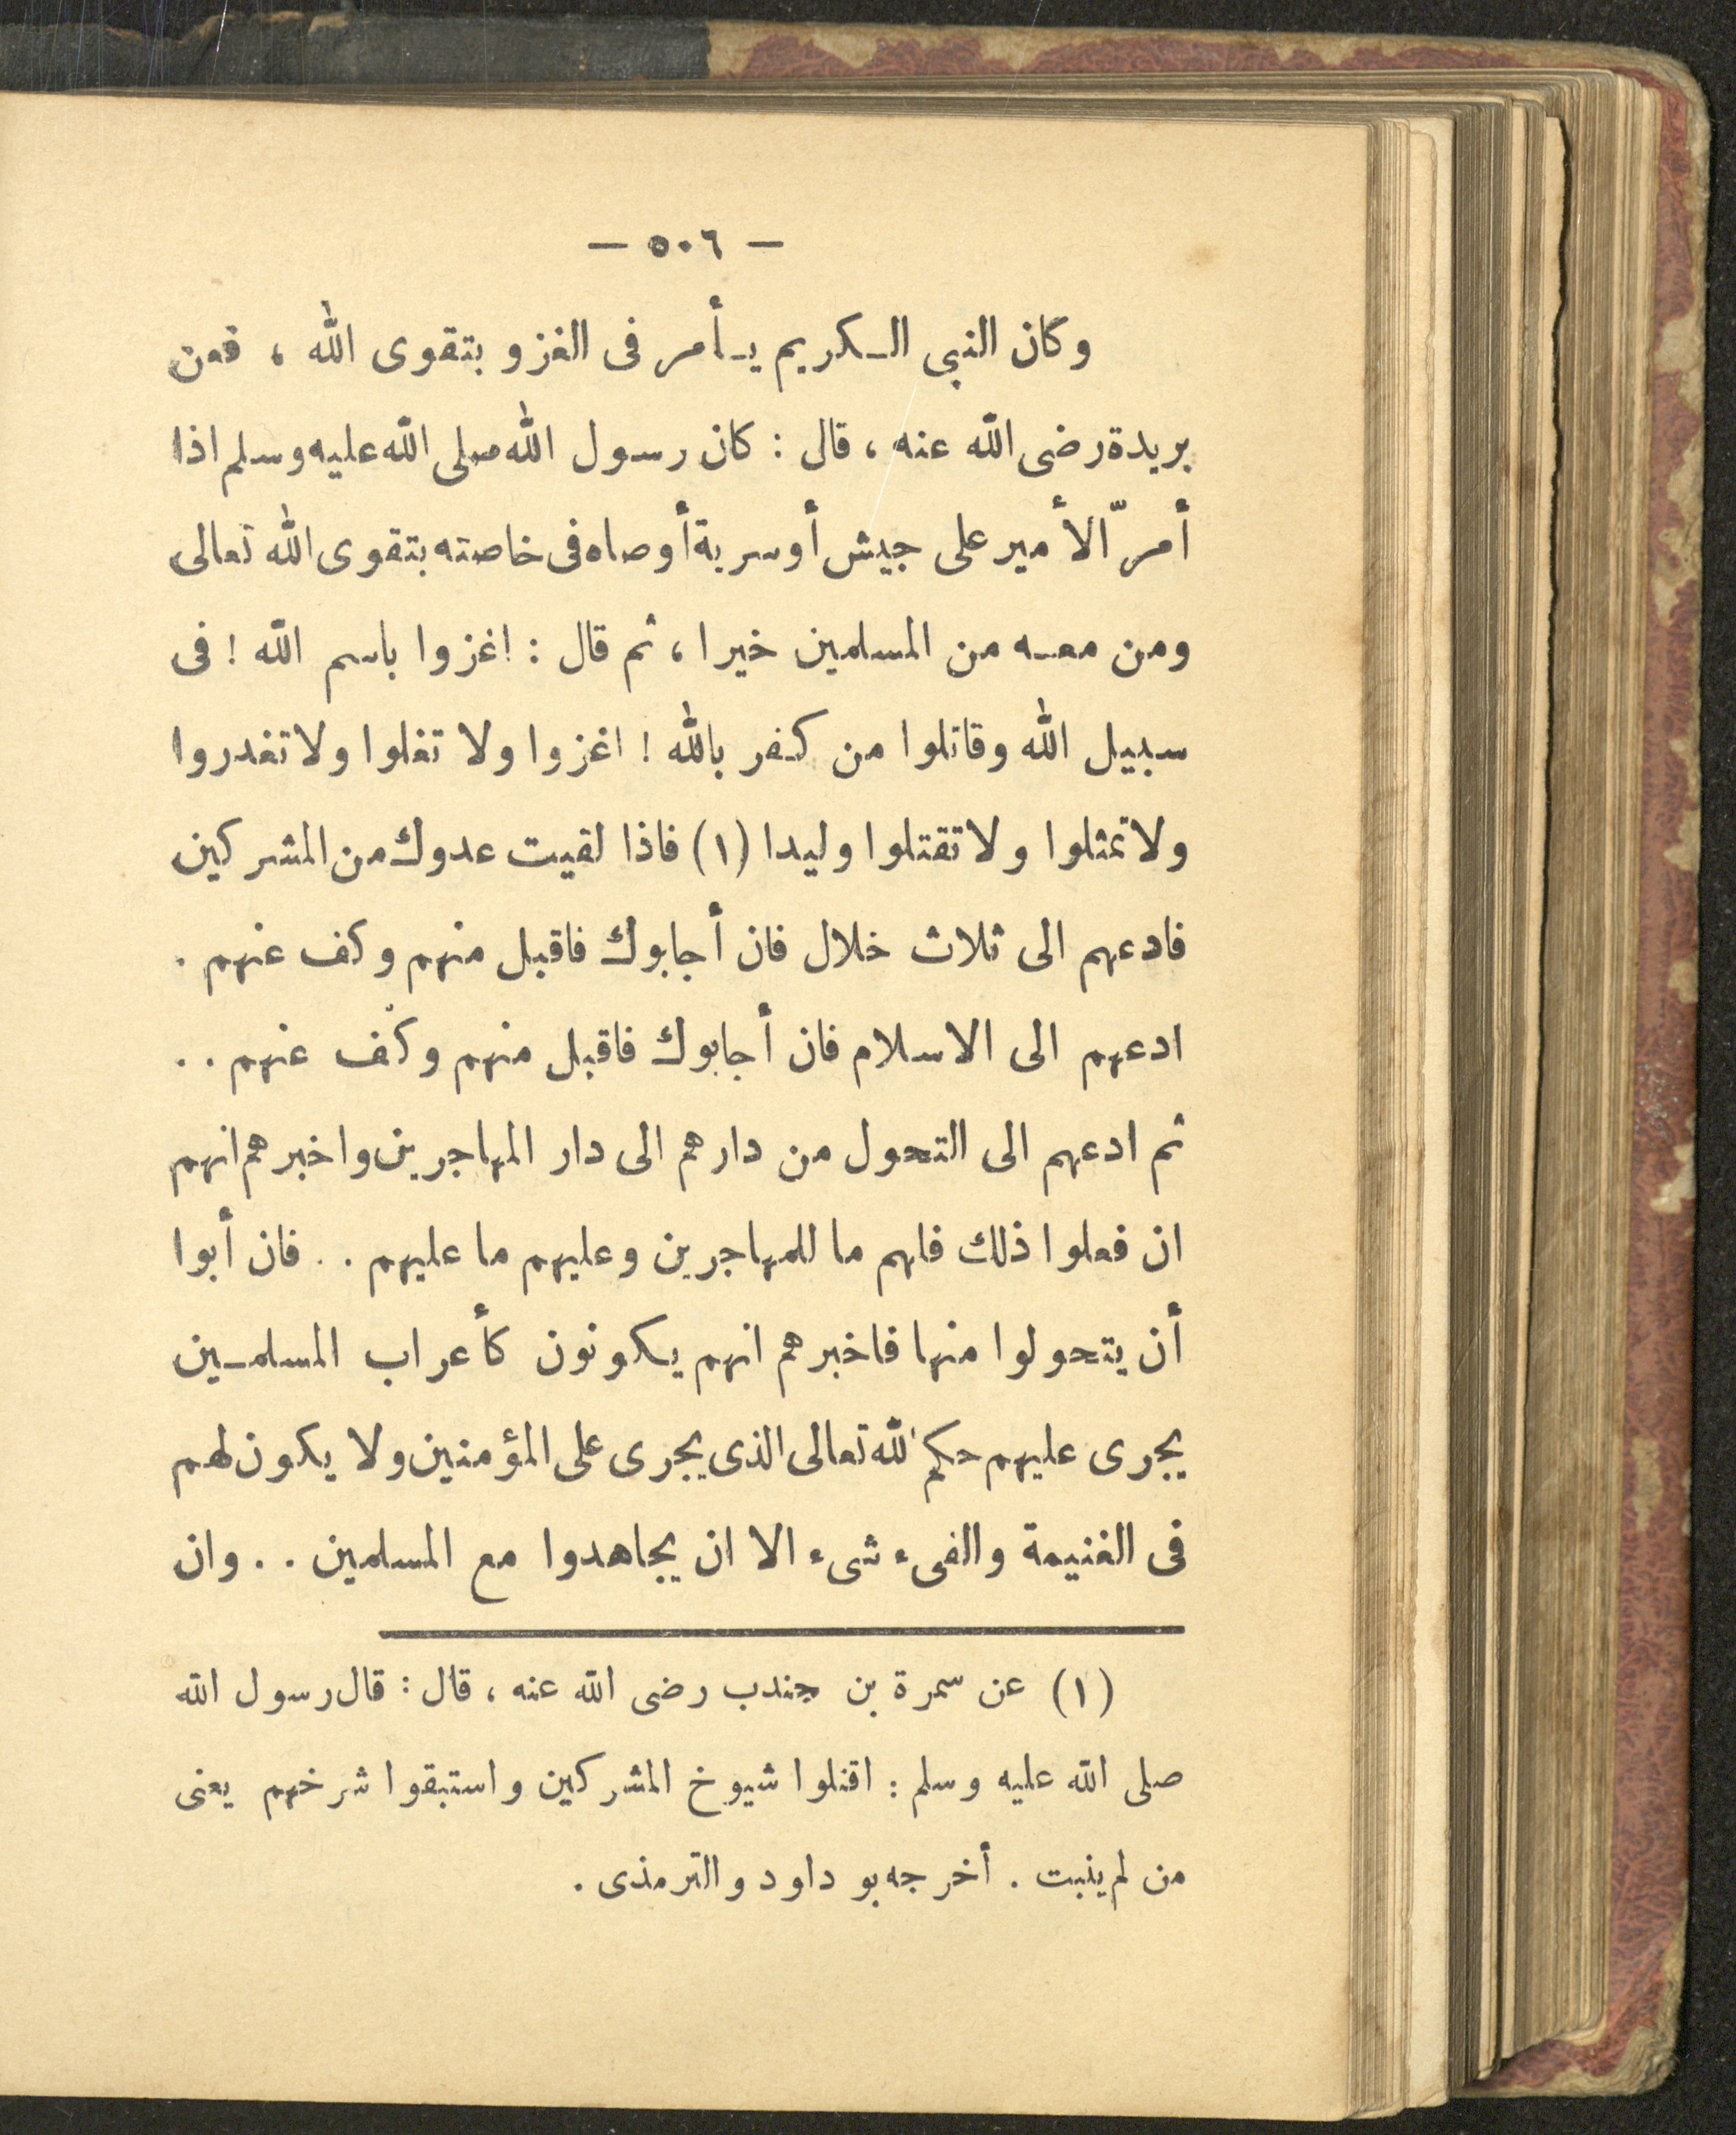 — ٥٠٦ —
وكان النبى الكريم يأمر فى الغزو بتقوى الله ، فعن
بريدة رضى الله عنه ، قال : كان رسول الله صلى الله عليه وسلم اذا
أمرّ الأمير على جيش أو سرية أوصاه فى خاصته بتقوى الله تعالى
ومن معه من المسلمين خيرا ، ثم قال : اغزوا باسم الله ! فى
سبيل الله وقاتلوا من كفر بالله ! اغزوا ولا تغلوا ولا تغدروا
ولا تمثلوا ولا تقتلوا وليدا (١) فاذا لقيت عدوك من المشركين
فادعهم الى ثلاث خلال فان أجابوك فاقبل منهم وكف عنهم .
ادعهم الى الاسلام فان أجابوك فاقبل منهم وكف عنهم . .
ثم ادعهم الى التحول من دارهم الى دار المهاجرين واخبرهم انهم
ان فعلوا ذلك فلهم ما للمهاجرين وعليهم ما عليهم . . فان أبوا
أن يتحولوا منها فاخبرهم انهم يكونون كأعراب المسلمين
يجرى عليهم حكم الله تعالى الذى يجرى على المؤمنين ولا يكون لهم
فى الغنيمة والفىء شىء الا ان يجاهدوا مع المسلمين . . وان
(١) عن سمرة بن جندب رضى الله عنه ، قال : قال رسول الله
صلى الله عليه وسلم : اقتلوا شيوخ المشركين واستبقوا شرخهم يعنى
من لم ينبت . أخرجه بو داود والترمذى .